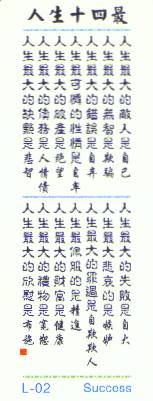 人生十四最
人生最大的敵人是自己
人生最大的無智是欺騙
人生最大的錯誤是自卑
人生最可憐的性情是自卑
人生最大的破產是絕望
人生最大的債務是人情債
人生最大的缺欠是悲智
人生最大的失敗是自大
人生最大的悲哀是嫉妒
人生最大的罪過是自欺欺人
人生最佩服的是精進
人生最大的財富是健康
人生最大的禮物是寬恕
人生最大的欣慰是布施
L-02 Success